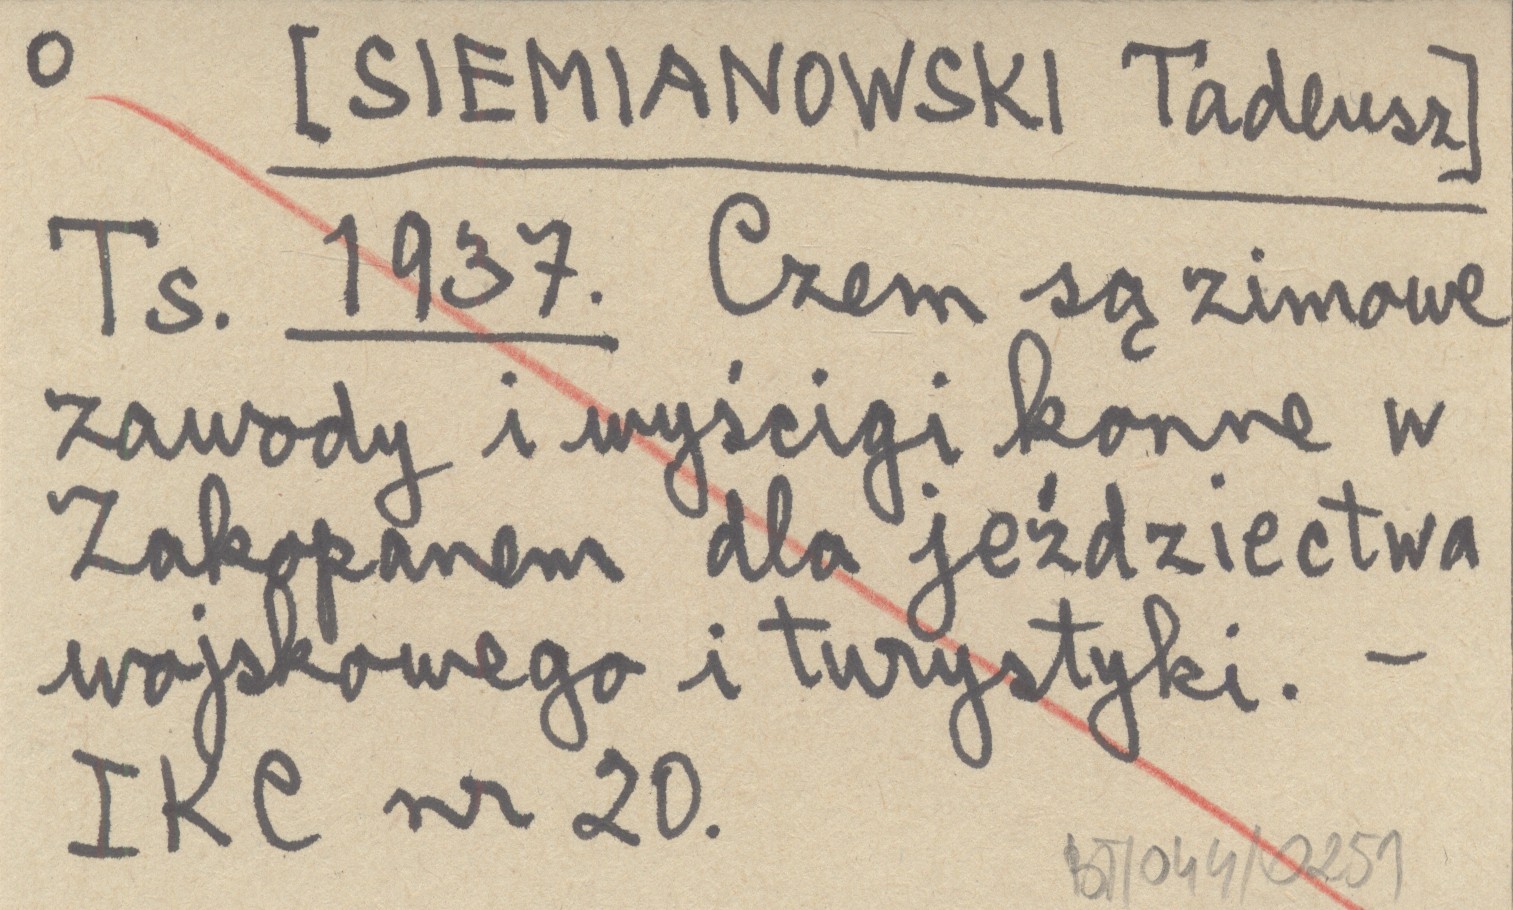 o [SIEMIANOWSKI Tadeusz]
Ts. 1937. Czem są zimowe
zawody i wyścigi konne w
Zakopanem dla jeździectwa
wojskowego i turystyki. –
IKC nr 20.
BT/044/0251